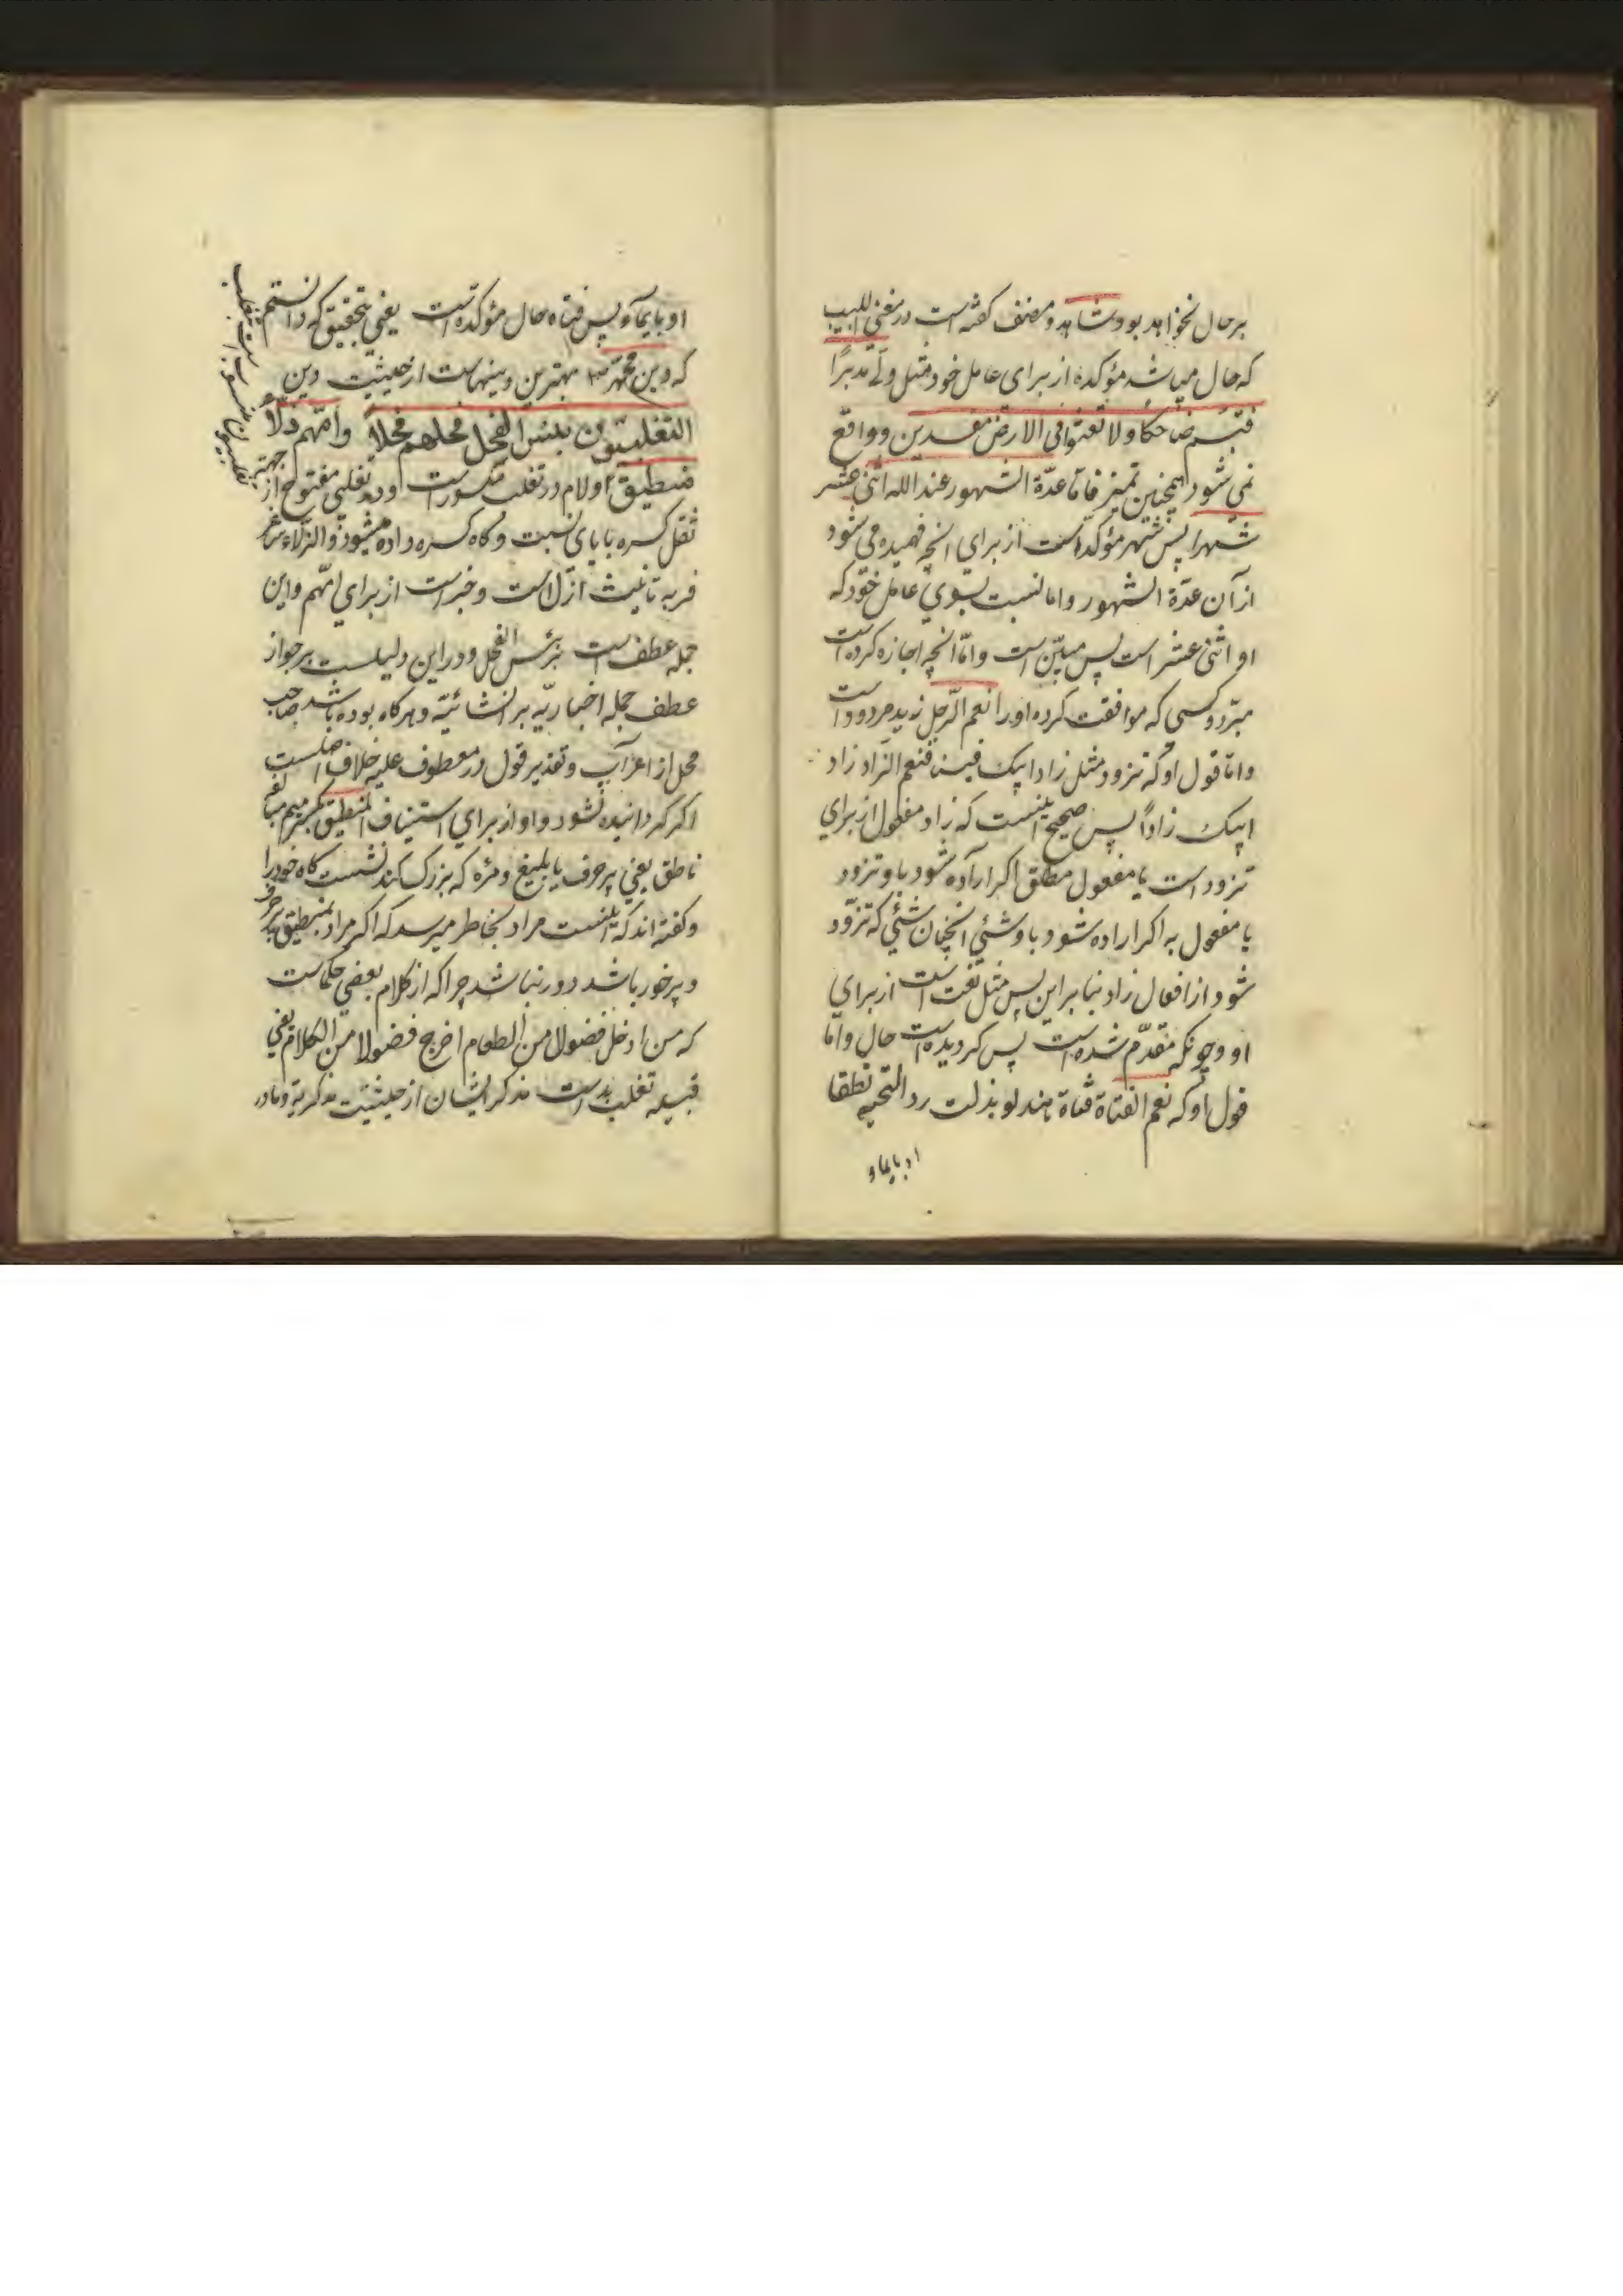 برحال نخواهد بود و شاهد و مصنف گفته است در مغنی اللبیب
که حال میباشد مؤکده از برای عامل خود مثل ولّی مدبرًا
فتبسم ضاحکا ولا تعثوا فی الارض مفسدین و واقع
نمی شود همچنین تمیز فاما عدّة الشهور عند الله اثنی عشر
شهرا پس شهر مؤکد است از برای انچه فهمیده می شود
از آن عدّة الشهور و اما نسبت بسوی عامل خود که
او اثنی عشر است پس مبیّن است و امّا انچه اجازه کرده است
مبرّد و کسی که موافقت کرده او را نعم الرّجل زید مردود است
و اما قول او که تزود مثل زاد ابیک فینا فنعم الزاد زاد
ابیک زاداً پس صحیح اینست که زاد مفعول از برای
تزود است یا مفعول مطلق اکر اراده شود باو تزود
یا مفعول به اکر اراده شود باو شئی انچنان شئی که تزوّد
شود از افعال زاد بنا براین پس مثل نعت است از برای
او و چونکه مقدّم شده است پس کردیده است حال و اما
قول او که نعم الفتاة فتاة هند لو بذلت رد التحیه نطقا
او بایماء
او بایماء پس فتاه حال مؤکده است یعنی بتحقیق که دانستم
که دین محمّد بهترین دینهاست از حیثیّت دین
التغلبیّون بئس الفحل فحلهم فحلاً وامّهم زلّاء
منطیق و لام در تغلب مکسور است و در تغلبی مفتوح از جهت
ثقل کسره با یای نسبت و کاه کسره داده میشود و الزلاء غیر
فربه تانیث ازلّ است و خبر است از برای امّهم و این
جمله عطف است بر بئس الفحل و در این دلیلست بر جواز
عطف جمله اخباریّه بر انشائیّه و هرکاه بوده باشد صاحب
محل از اعراب و تقدیر قول در معطوف علیه خلاف اصلست
اکر کردانیده نشود واو از برای استیناف المنطیق بکسر میم مبالغه
ناطق یعنی پر حرف یا بلیغ و مرٔه که بزرک کند نشست کاه خود را
و کفته اند که اینست مراد بخاطر میرسد که اکر مراد بمنطیق پر حرف
و پرخور باشد دور نباشد چرا که از کلام بعضی حکماست
که من ادخل فضولا من الطعام اخرج فضولا من الکلام یعنی
قبیله تغلب بد است مذکر ایشان از حیثیّت مذکریّة و مادر
تغلبیون منسوب است بتغلب